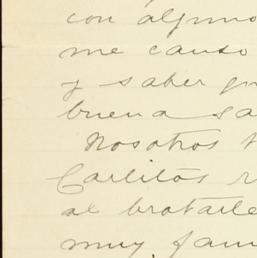 con alguno
me causo
y saber qu
buena sa
Nosotros t
Carlitos r
al brotarle
muy fam